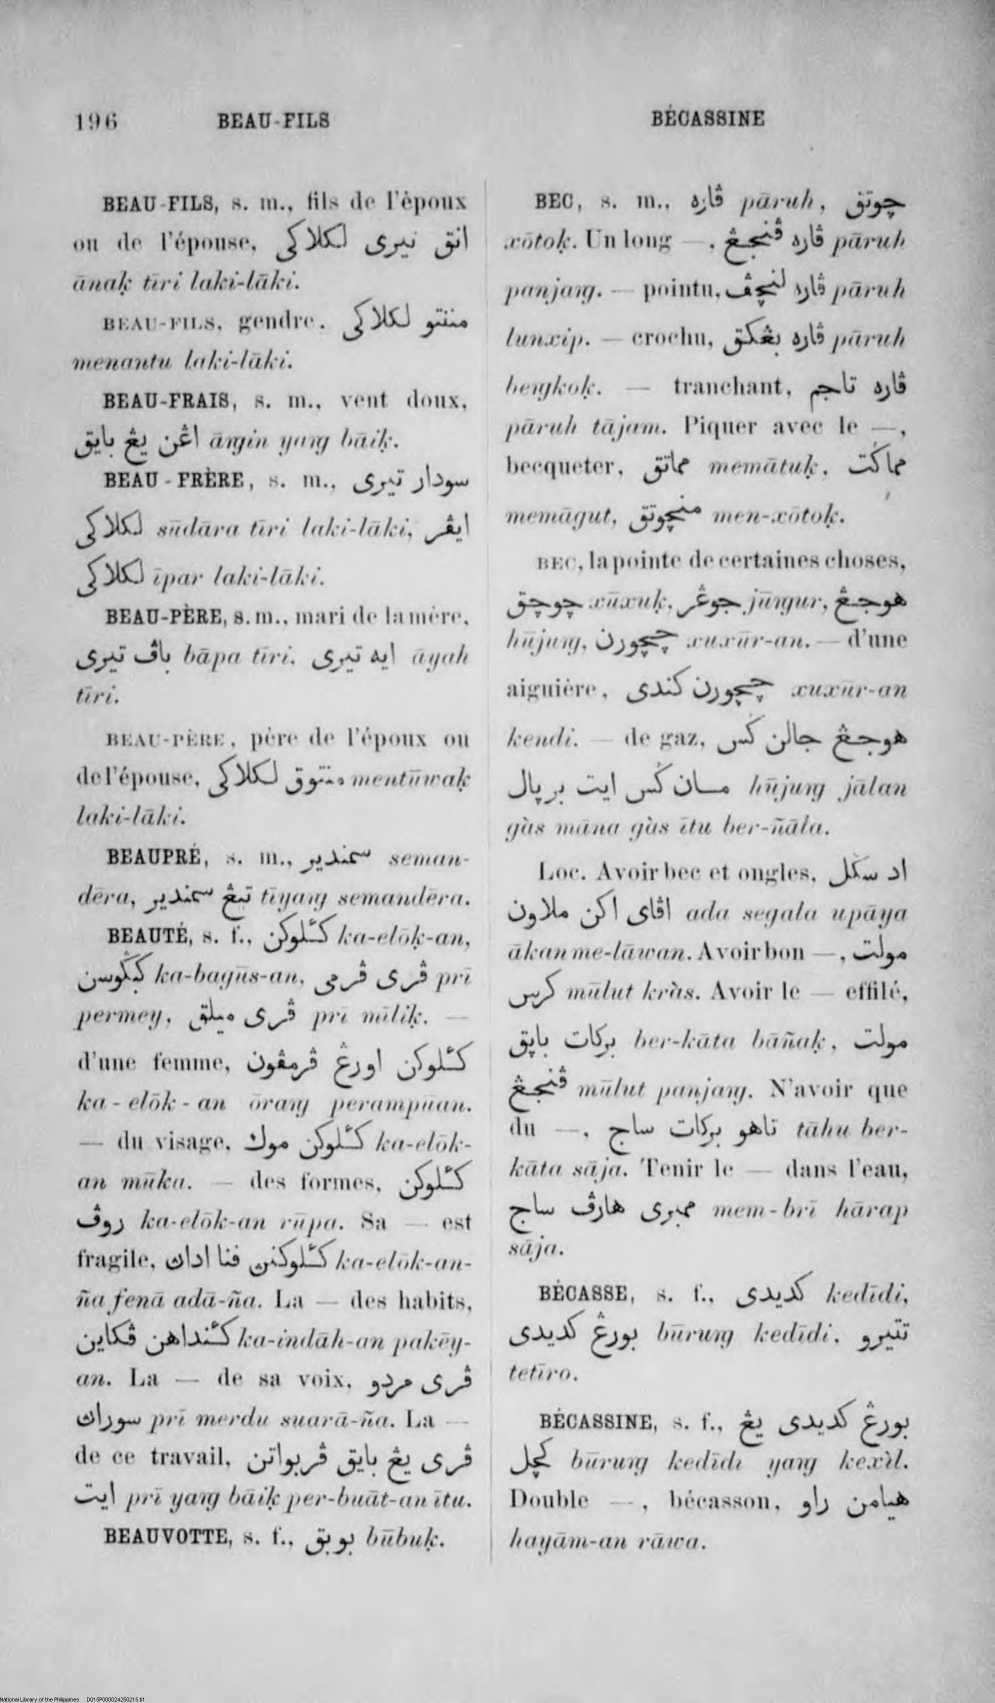 196 BEAU-FILS BÉCASSINE
BEAU-FILS, s. m., fils de l'époux
ou de l'épouse, انق تيري لكلاكي
ānaḳ tīri laki-lāki.
BEAU-FILS, gendre, مننتو لكلاكي
menantu laki-lāki.
BEAU-FRAIS, s. m., vent doux,
اڠن يڠ بايق āŋin yaŋ bāiḳ.
BEAU-FRÈRE, s. m., سودار تيري
لكلاكي sūdāra tīri laki-lāki, ايڤر
لكلاكي īpar laki-lāki.
BEAU-PÈRE, s. m., mari de la mère,
باڤ تيري bāpa tīri, ايه تيري āyah
tīri.
BEAU-PÈRE, père de l'époux ou
de l'épouse, منتووق لكلاكي mentūwaḳ
laki-lāki.
BEAUPRÉ, s. m., سمندير seman-
dēra, تيڠ سمندير tīyaŋ semandēra.
BEAUTÉ, s. f., كئلوكن ka-elōḳ-an,
كبڬوسن ka-bagūs-an, ڤري ڤرمي prī
permey, ڤري ميلق prī mīliḳ. —
d'une femme, كئلوكن اورڠ ڤرمڤون
ka-elōk-an ōraŋ perampūan.
— du visage, كئلوكن موك ka-elōk-
an mūka. — des formes, كئلوكن
روڤ ka-elōk-an rūpa. Sa — est
fragile, كئلوكنڽ فنا اداڽ ka-elōk-an-
ña fenā adā-ña. La — des habits,
كئنداهن ڤكاين ka-indāh-an pakēy-
an. La — de sa voix, ڤري مردو
سوراڽ prī merdu suarā-ña. La —
de ce travail, ڤري يڠ بايق ڤربواتن
ايت prī yaŋ bāiḳ per-buāt-an ītu.
BEAUVOTTE, s. f., بوبق būbuḳ.
BEC, s. m., ڤاره pāruh, چوتق
xōtoḳ. Un long —, ڤاره ڤنجڠ pāruh
panjaŋ. — pointu, ڤاره لنچڤ pāruh
lunxip. — crochu, ڤاره بڠكق pāruh
beŋkoḳ. — tranchant, ڤاره تاجم
pāruh tājam. Piquer avec le —,
becqueter, مماتق memātuḳ, مماڬت
memāgut, منچوتق men-xōtoḳ.
BEC, la pointe de certaines choses,
چوچق xūxuḳ, جوڠر jūŋur, هوجڠ
hūjuŋ, چچورن xuxūr-an. — d'une
aiguière, چچورن كندي xuxūr-an
kendi. — de gaz, هوجڠ جالن ڬس
مان ڬس ايت برڽال hūjuŋ jālan
gàs māna gàs ītu ber-ñāla.
Loc. Avoir bec et ongles, اد سڬل
اڤاي اكن ملاون ada segala upāya
ākan me-lāwan. Avoir bon —, مولت
كرس mūlut kràs. Avoir le — effilé,
بركات باڽق ber-kāta bāñaḳ, مولت
ڤنجڠ mūlut panjaŋ. N'avoir que
du —, تاهو بركات ساج tāhu ber-
kāta sāja. Tenir le — dans l'eau,
ممبري هارڤ ساج mem-brī hārap
sāja.
BÉCASSE, s. f., كديدي kedīdi,
بورڠ كديدي būruŋ kedīdi, تتيرو
tetīro.
BÉCASSINE, s. f., بورڠ كديدي يڠ
كچل būruŋ kedīdi yaŋ kexìl.
Double —, bécasson, هيامن راو
hayām-an rāwa.
National Library of the Philippines